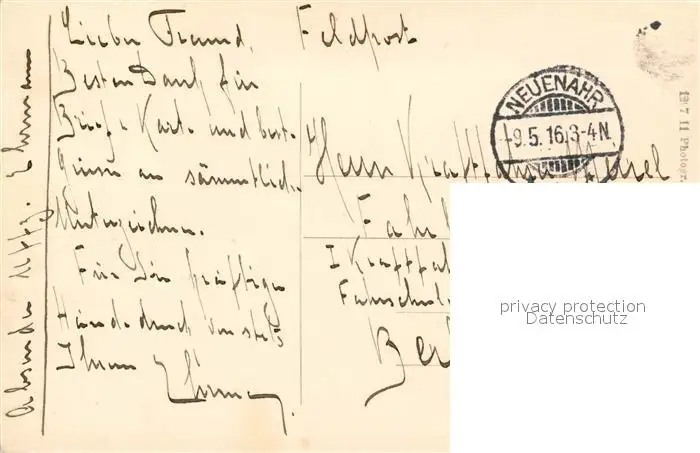 Lieber Freund,
Besten Dank für
Brief u Karte und best.
Grüsse an sämmtliche
Unterzeichner.
Für Sie kräftigen
Händedruck von stets
Ihrem
Feldpost
NEUENAHR
9.5.16.3-4N.
Herrn
I Kraftfa
Fahrschul
Be
Absender
privacy protection
Datenschutz
1917 11 Photogr.